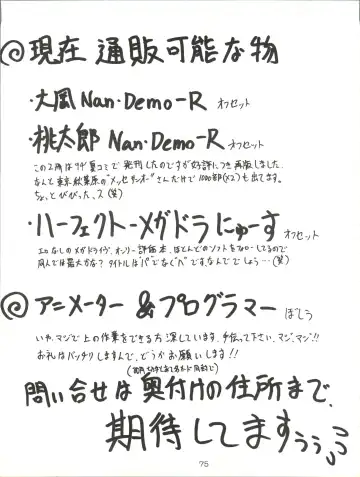 ◎現在通販可能な物
・大風Nan・Demo-R オフセット
・桃太郎 Nan・Demo-R オフセット
この2冊は93夏コミで発刊したのですが好評につき再版しました.
なんと東京秋葉原の"メッセサンオー"さんだけで1000部(×2)も出てます。
ちょっとびびった、ス(笑)
・ハーフェクトーメガドラにゅーす オフセット
エロなしのメガドライヴ、オンリー評価本、ほとんどのソフトをフォローしてるので
同人では最大かな? タイトルは"パ"でなく"ハ"です.なんででしょう…(笑)
◎アニメーター&プログラマー ぼしう
いや、マジで上の作業をできる方 探しています、手伝って下さい、マジ、マジ!!
お礼はバッチリしますんで、どうかお願いします!!
問い合せは奥付けの住所まで、
期待してますぅぅぅ
75